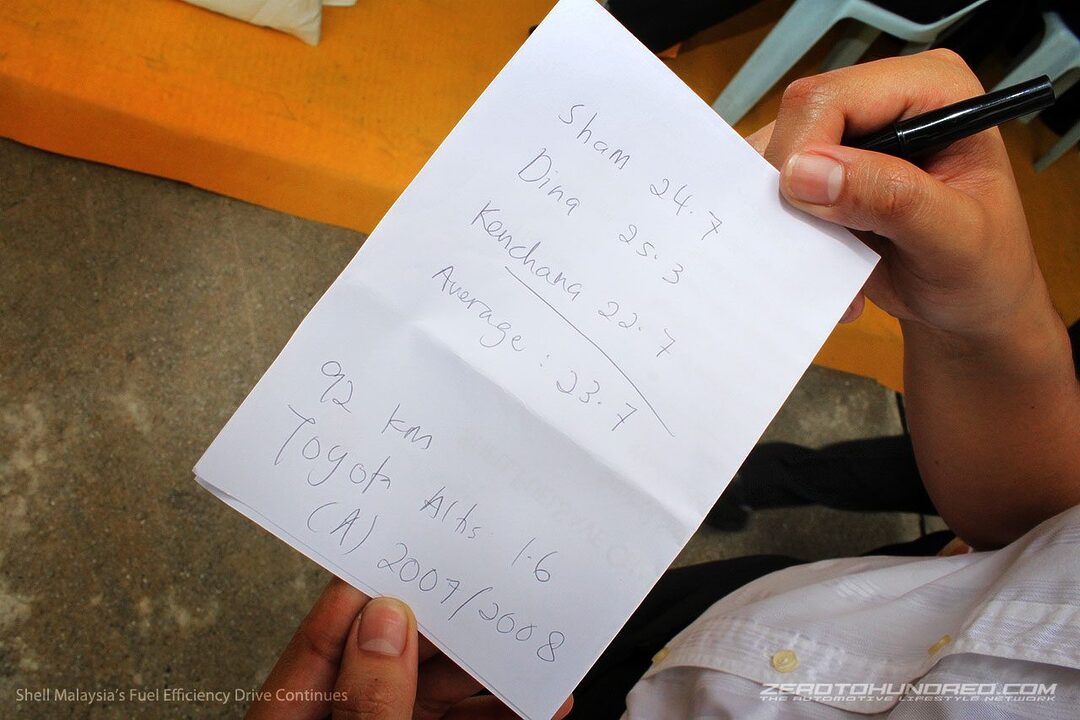 Sham 24.7
Dina 25.3
Kenchana 22.7
Average : 23.7
92 km
Toyota Altis 1.6
(A) 2007/2008
Shell Malaysia's Fuel Efficiency Drive Continues
ZEROTOHUNDRED.COM
THE AUTOMOTIVE LIFESTYLE NETWORK